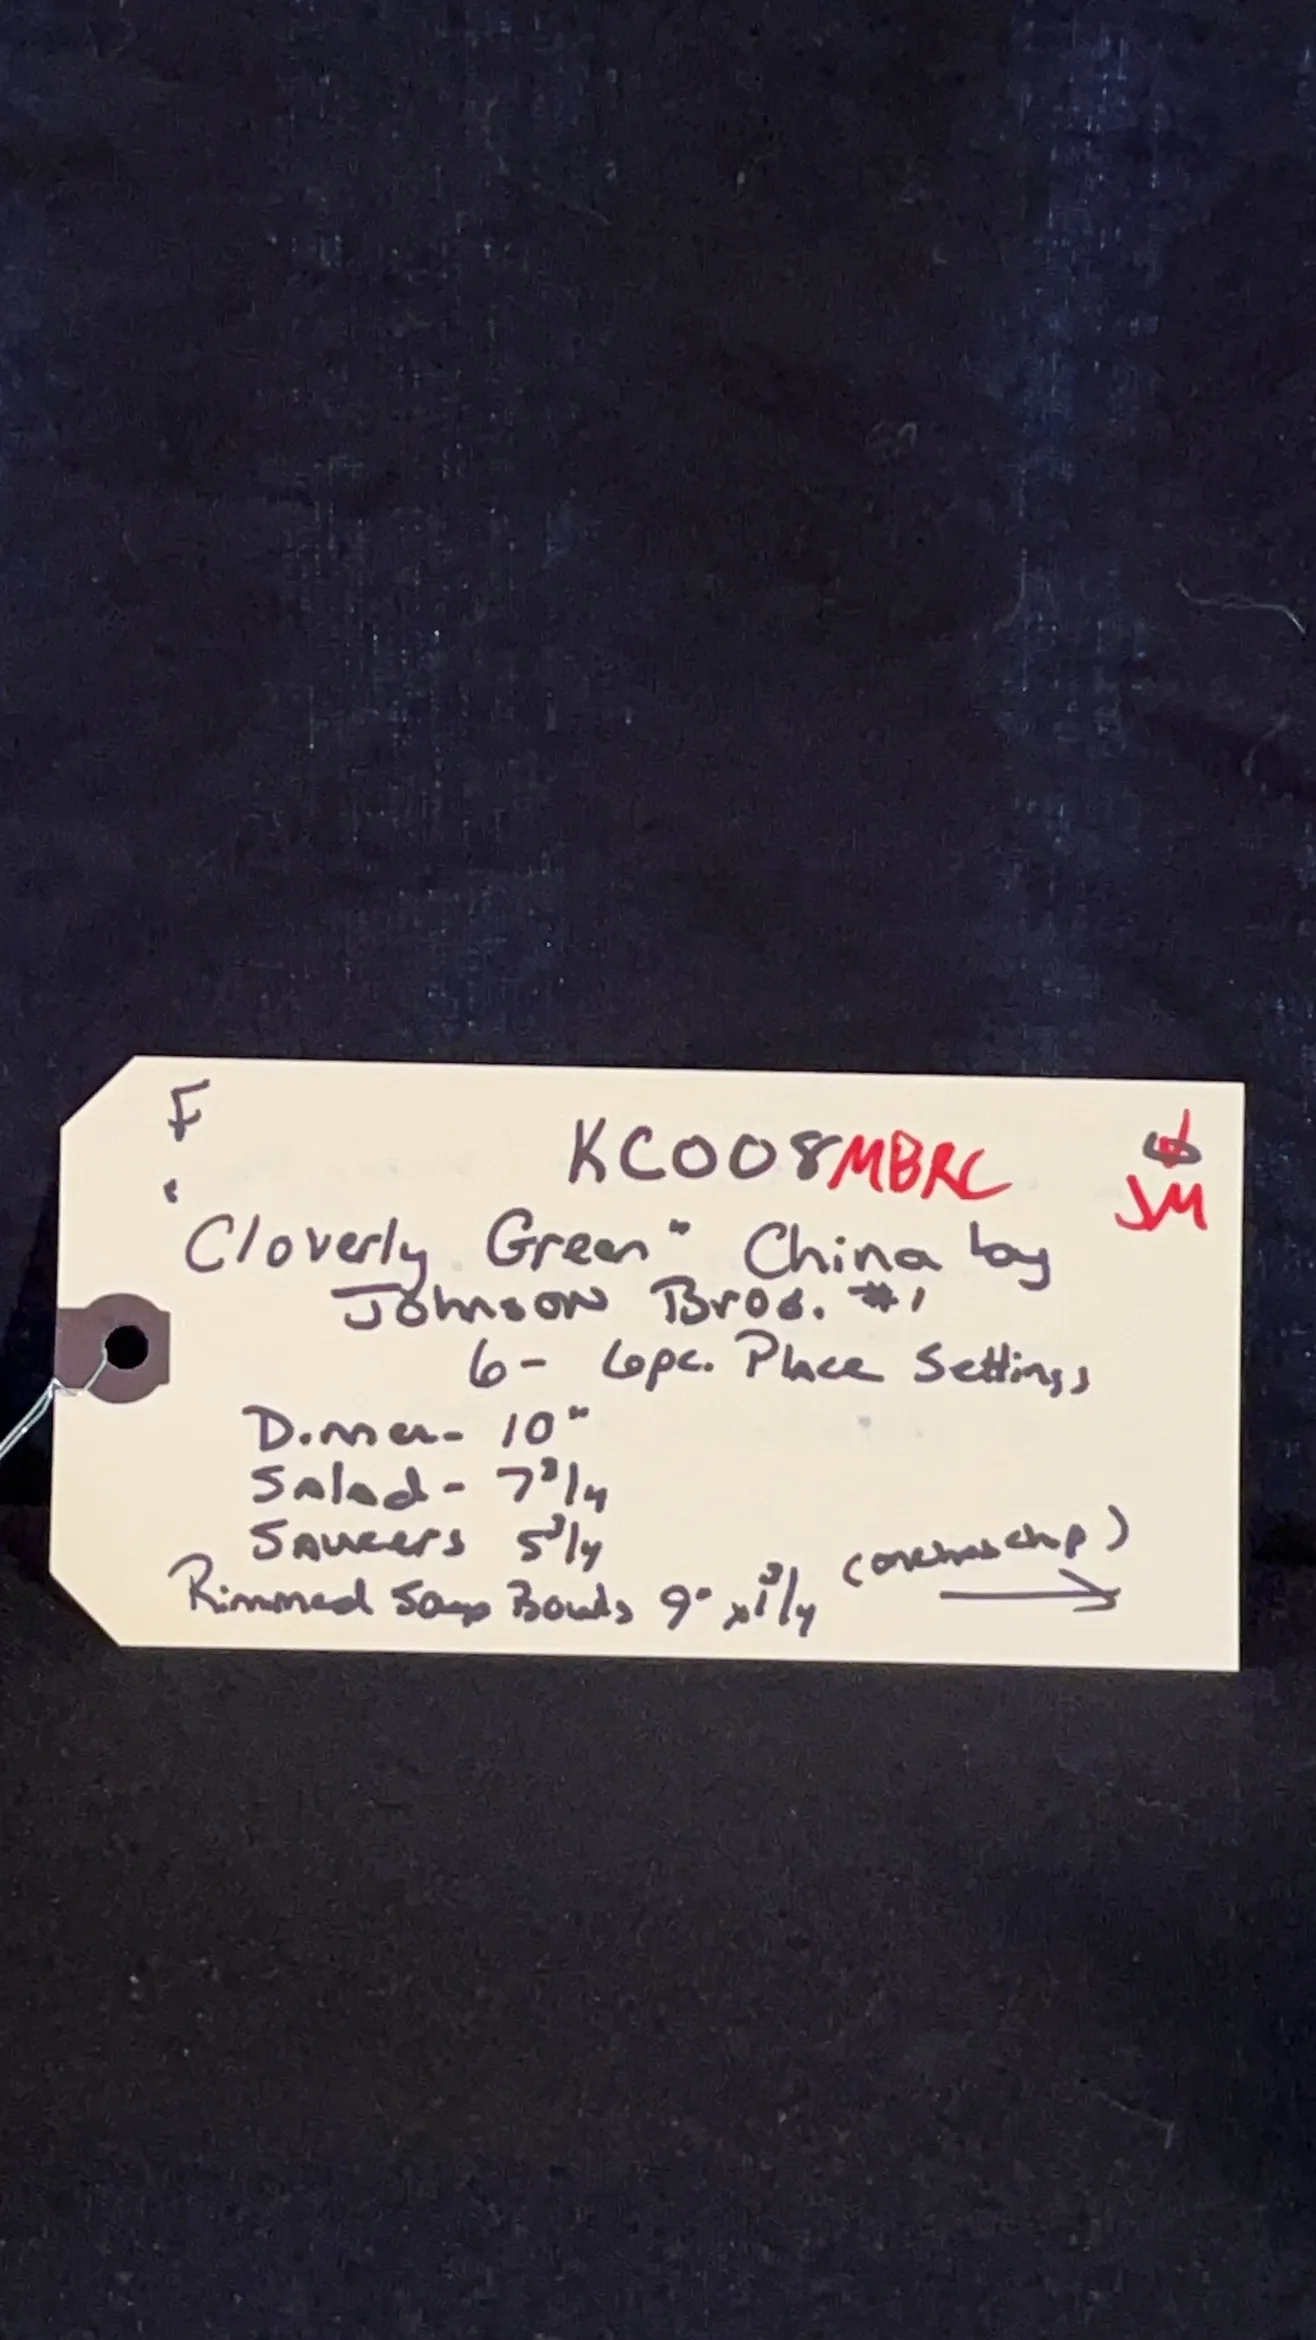 F
KC008MBRC
JM
"Cloverly Green" China by
Johnson Bros. #1
6- 6pc. Place Settings
Dinner- 10"
Salad- 7 3/4
Saucers 5 3/4
Rimmed Soup Bowls 9" x 1 3/4 (one has chip)